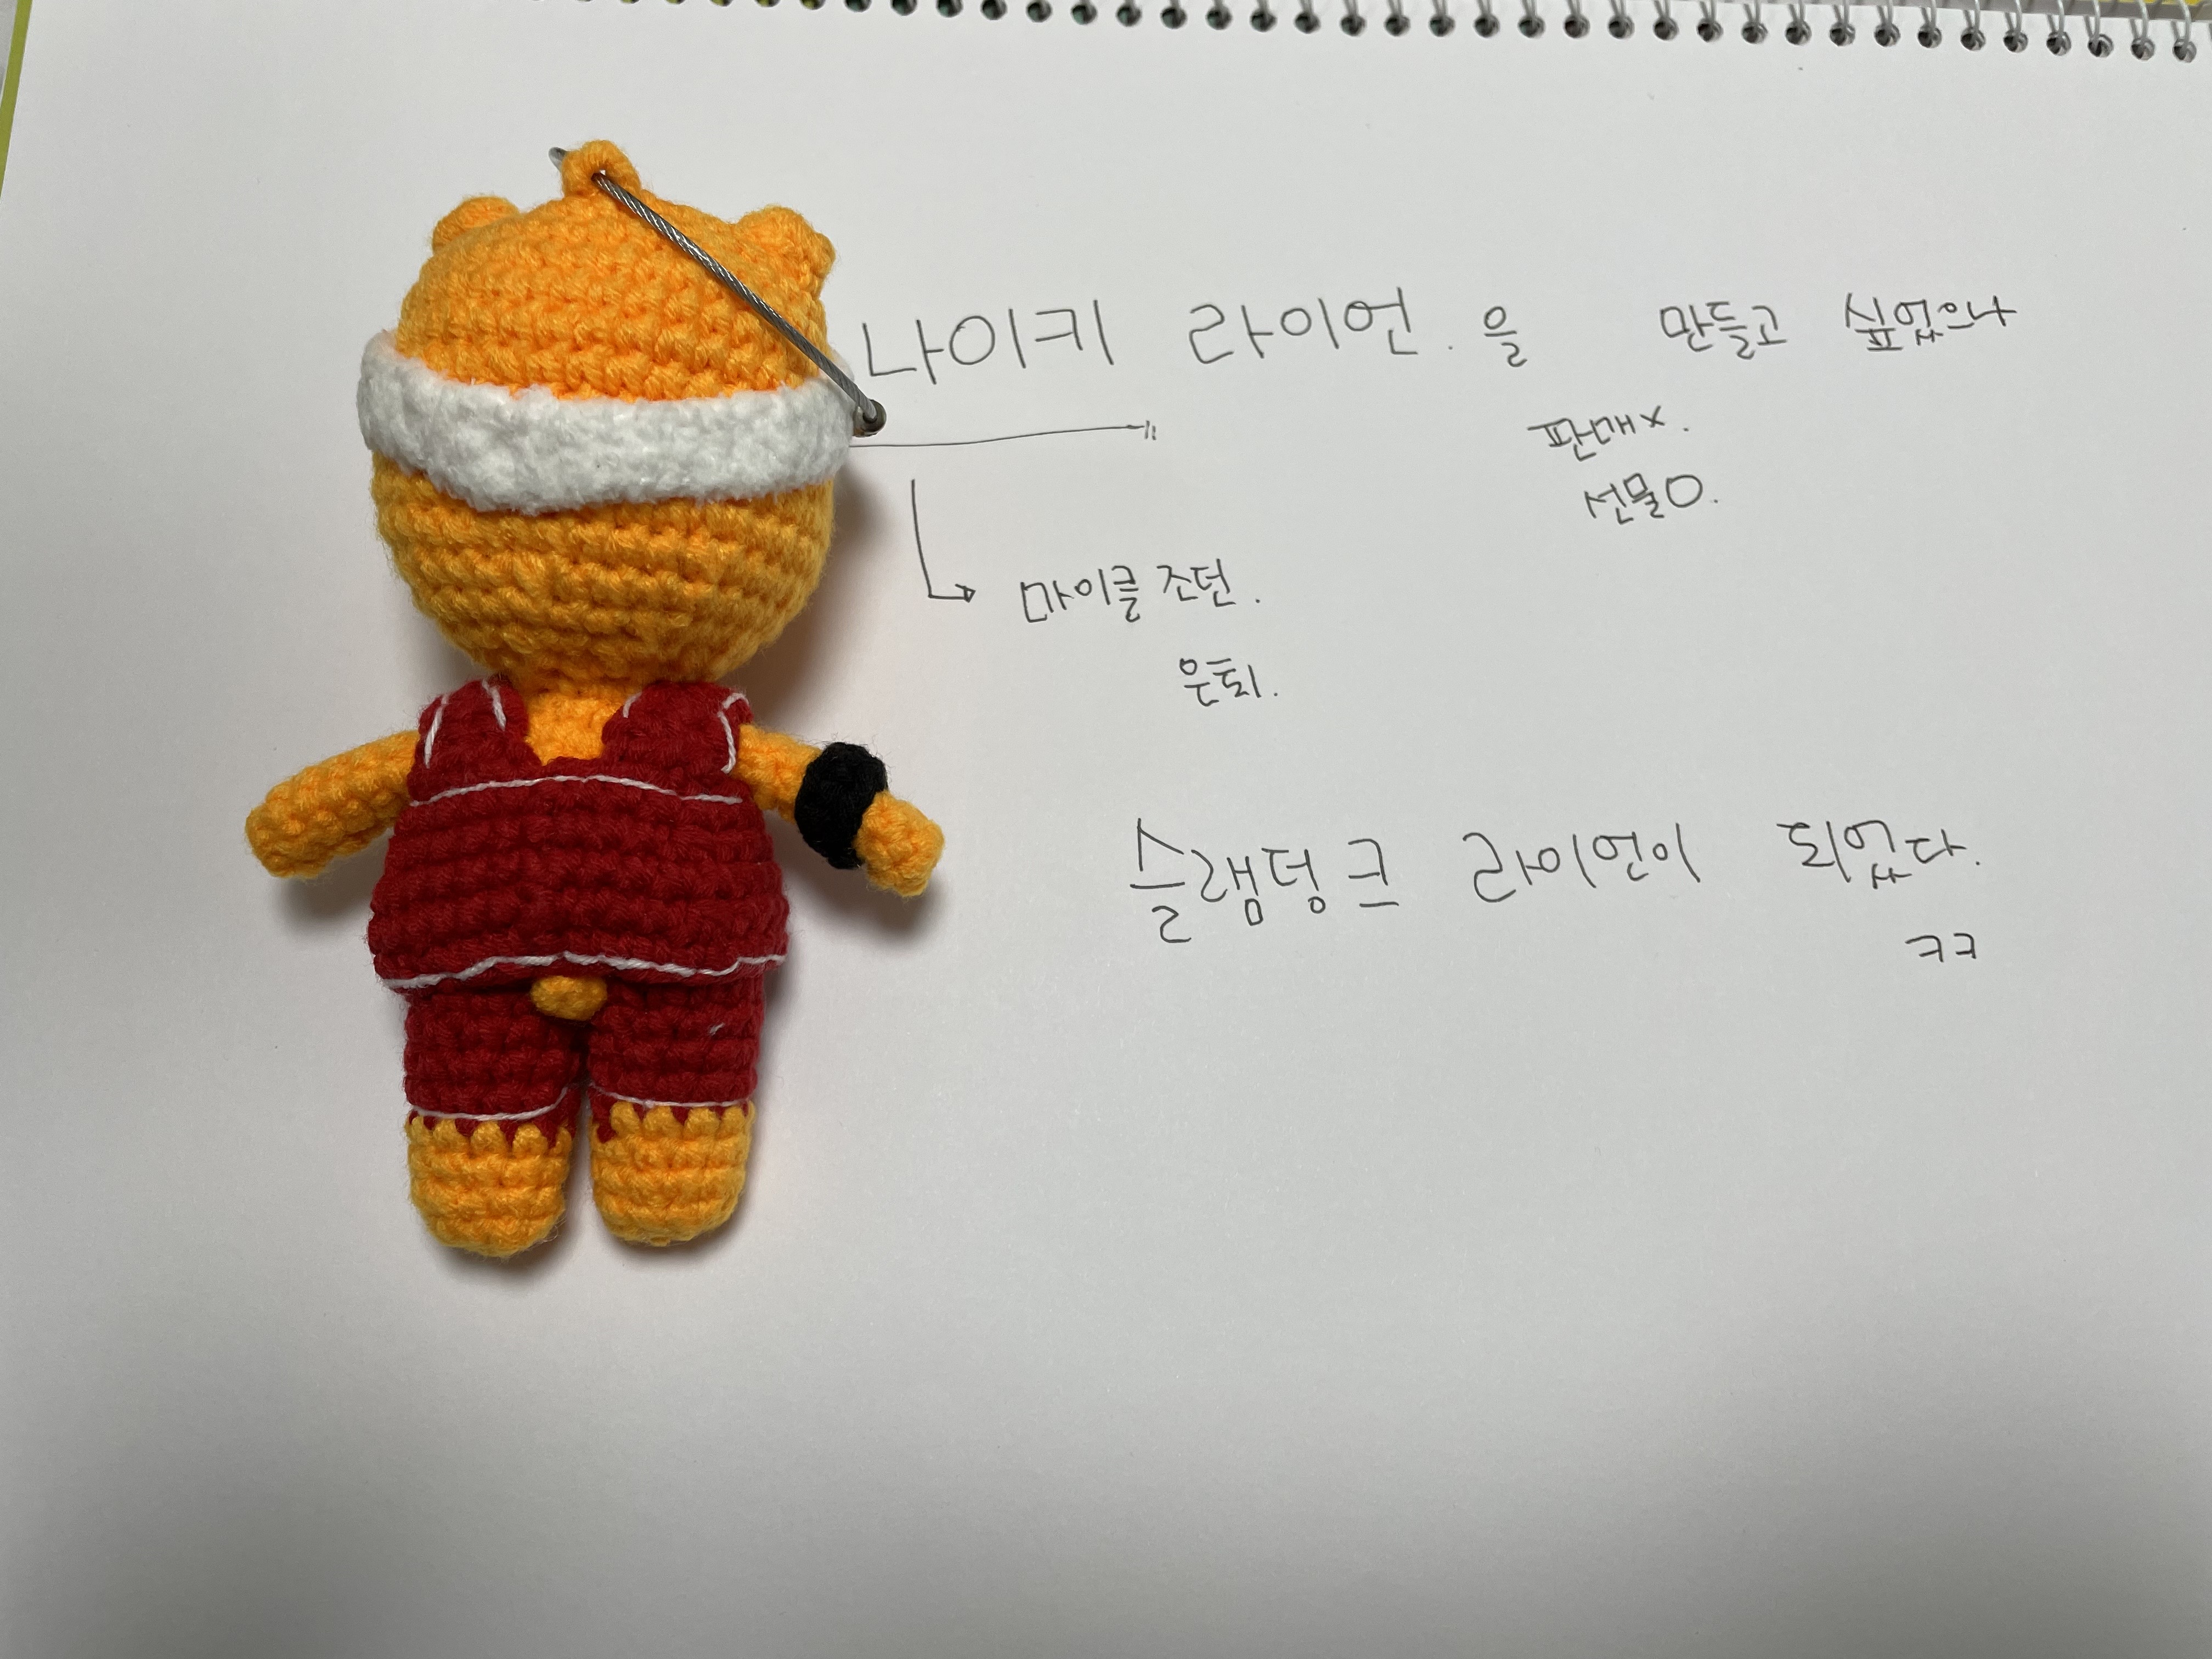 나이키 라이언.을 만들고 싶었으나
판매x.
선물O.
마이클 조던.
은퇴.
슬램덩크 라이언이 되었다.
ㅋㅋ